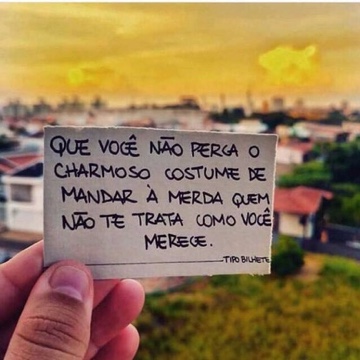 QUE VOCÊ NÃO PERCA O
CHARMOSO COSTUME DE
MANDAR À MERDA QUEM
NÃO TE TRATA COMO VOCÊ
MERECE.
TIPO BILHETE